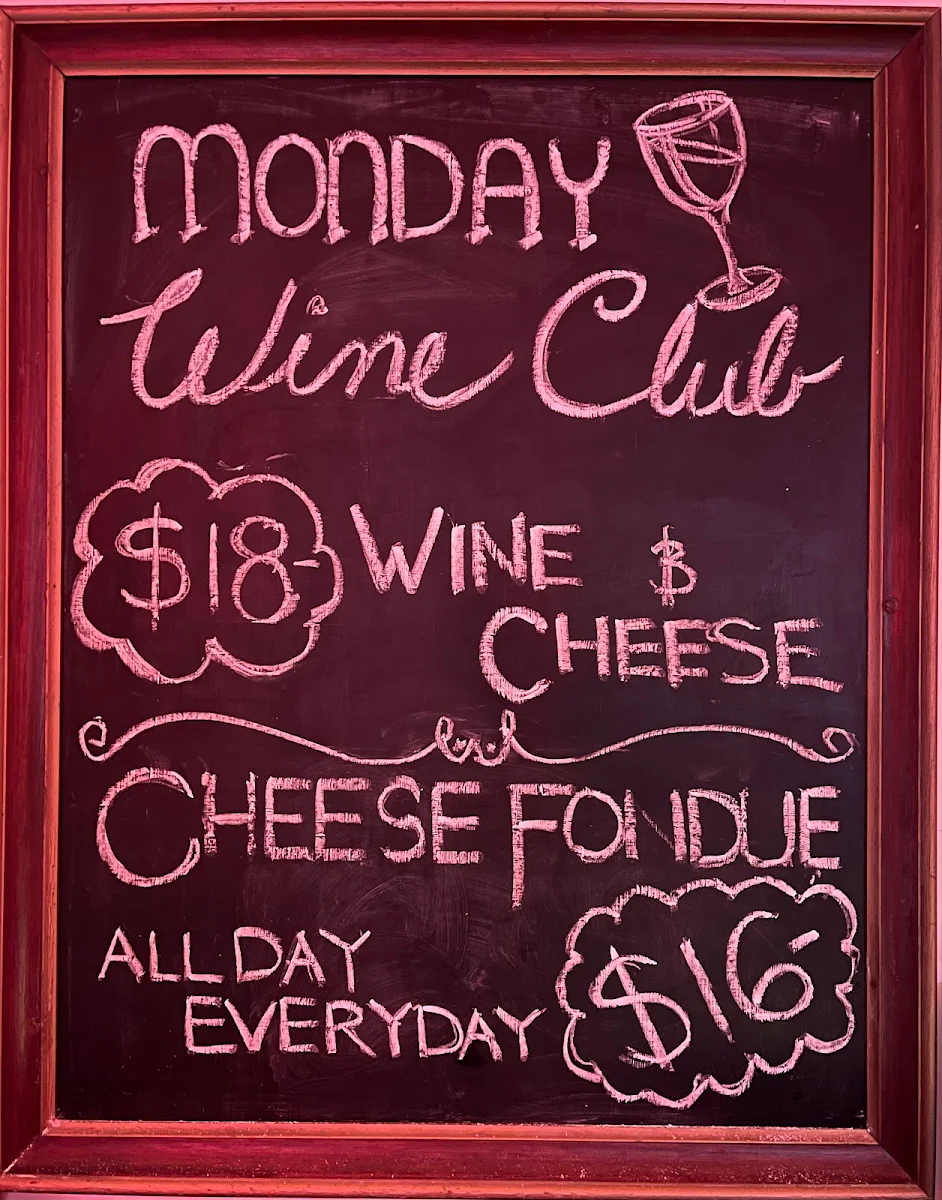 MONDAY
Wine Club
$18- WINE &
CHEESE
CHEESE FONDUE
ALL DAY
EVERYDAY
$16-